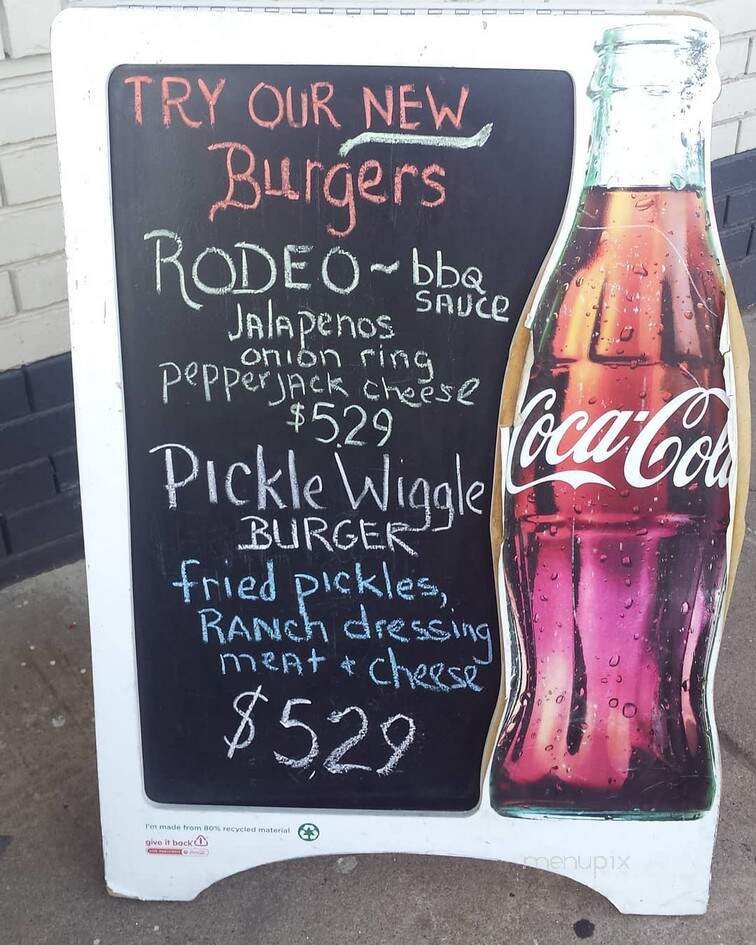 TRY OUR NEW
Burgers
RODEO ~ bbq
SAUCE
JAlApenos
onion ring
pepper JACK cheese
$5.29
Pickle Wiggle
BURGER
fried pickles,
RANCh dressing
meat + cheese
$5.29
Coca-Cola
I'm made from 80% recycled material
give it back
menupix